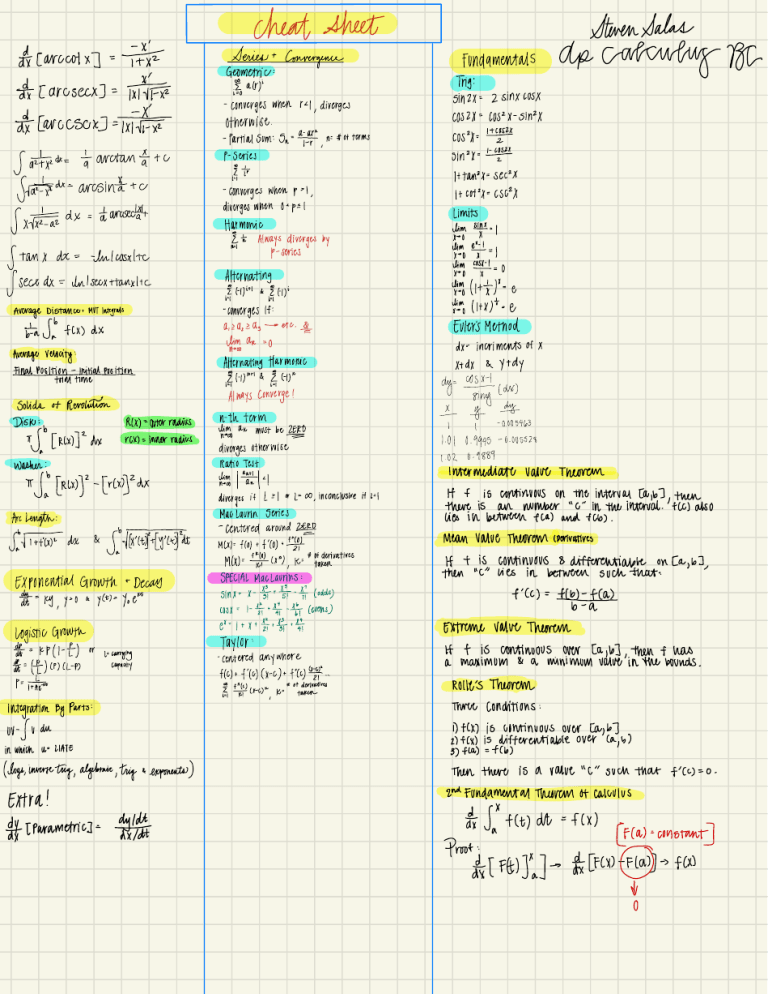 cheat sheet
Steven Salas
AP Calculus BC
d/dx [arccot x] = -x'/1+x²
d/dx [arcsecx] = x'/|x|√1-x²
d/dx [arccscx] = -x'/|x|√1-x²
∫ 1/a²+x² dx = 1/a arctan x/a + c
∫ 1/√a²-x² dx = arcsin x/a + c
∫ 1/x√x²-a² dx = 1/a arcsec|x|/a +
∫ tan x dx = -ln|cosx|+c
∫ secx dx = ln|secx+tanx|+c
Average Distance - MVT Integrals
1/b-a ∫ₐᵇ f(x) dx
Average Velocity:
Final Position - Initial Position / total time
Solids of Revolution
Disk: R(x) = outer radius
π∫ₐᵇ [R(x)]² dx r(x) = inner radius
Washer:
π∫ₐᵇ [R(x)]² - [r(x)]² dx
Arc Length:
∫ₐᵇ √1+f'(x)² dx & ∫ₐᵇ √[x'(t)]²+[y'(t)]² dt
Exponential Growth + Decay
= ky, y>0 & y(t) =
Logistic Growth
= KP(1- ) or L= carrying capacity
(P)(L-P)
P =
Integration By Parts:
uv - ∫ v du
in which u= LIATE
(logs, inverse trig, algebraic, trig & exponents)
Extra!
dy/dx [Parametric] = dy/dt / dx/dt
Series + Convergence
Geometric:
∑ a(r)ⁱ
- converges when r<1, diverges
otherwise.
- Partial Sum: Sₙ = a-arⁿ/1-r, n: # of terms
P-Series
- converges when p>1,
diverges when 0<p=1
Harmonic
Always diverges by
p-series
Alternating
∑ (-1)ⁱ⁺¹ & ∑ (-1)ⁱ
- converges if:
a₁≥a₂≥a₃ → etc. &
lim aₙ = 0
Alternating Harmonic
∑ (-1)ⁿ⁺¹ & ∑ (-1)ⁿ
Always Converge!
n-th term
lim aₙ must be ZERO
diverges otherwise
Ratio Test
lim |aₙ₊₁/aₙ| =
diverges if L>1 or L=∞, inconclusive if L=1
MacLaurin Series
- Centered around ZERO
M(x) = f(0) + f'(0) + f''(0)/2!
M(x) = (xⁿ), K= # of derivatives taken
SPECIAL MacLaurins:
sinx = x - x³/3! + x⁵/5! - x⁷/7! (odds)
cosx = 1 - x²/2! + x⁴/4! - x⁶/6! (evens)
eˣ = 1 + x + x²/2! + x³/3! + x⁴/4!
Taylor:
- centered anywhere
f(c) + f'(c)(x-c) + f''(c)(x-c)²/2! ...
(x-c)ⁿ, K= # of derivatives taken
Fundamentals
Trig:
sin2x = 2 sinx cosx
cos2x = cos²x-sin²x
cos²x = 1+cos2x/2
sin²x = 1-cos2x/2
1+tan²x = sec²x
1+cot²x = csc²x
Limits
lim x→0 sinx/x = 1
lim x→0 eˣ-1/x = 1
lim x→0 cosx-1/x = 0
lim (1+1/x)ˣ = e
lim (1+x)^1/x = e
Euler's Method
dx= incriments of x
x+dx & y+dy
dy= cosx-1/siny (dx)
x y dy
1 1
1.01 0.9945
1.02 0.9889
Intermediate Value Theorem
If f is continuous on the interval [a,b], then
there is an number "c" in the interval. f(c) also
lies in between f(a) and f(b).
Mean Value Theorem (Derivatives)
If f is continuous & differentiable on [a,b],
then "c" lies in between such that:
f'(c) = f(b)-f(a)/b-a
Extreme Value Theorem
If f is continuous over [a,b], then f has
a maximum & a minimum value in the bounds.
Rolle's Theorem
Three Conditions:
1) f(x) is continuous over [a,b]
2) f(x) is differentiable over (a,b)
3) f(a) = f(b)
Then there is a value "c" such that f'(c)=0.
2nd Fundamental Theorem of Calculus
d/dx ∫ₐˣ f(t) dt = f(x)
[F(a) = constant]
Proof:
d/dx [F(t)]ₐˣ] → d/dx [F(x)-F(a)] → f(x)
0